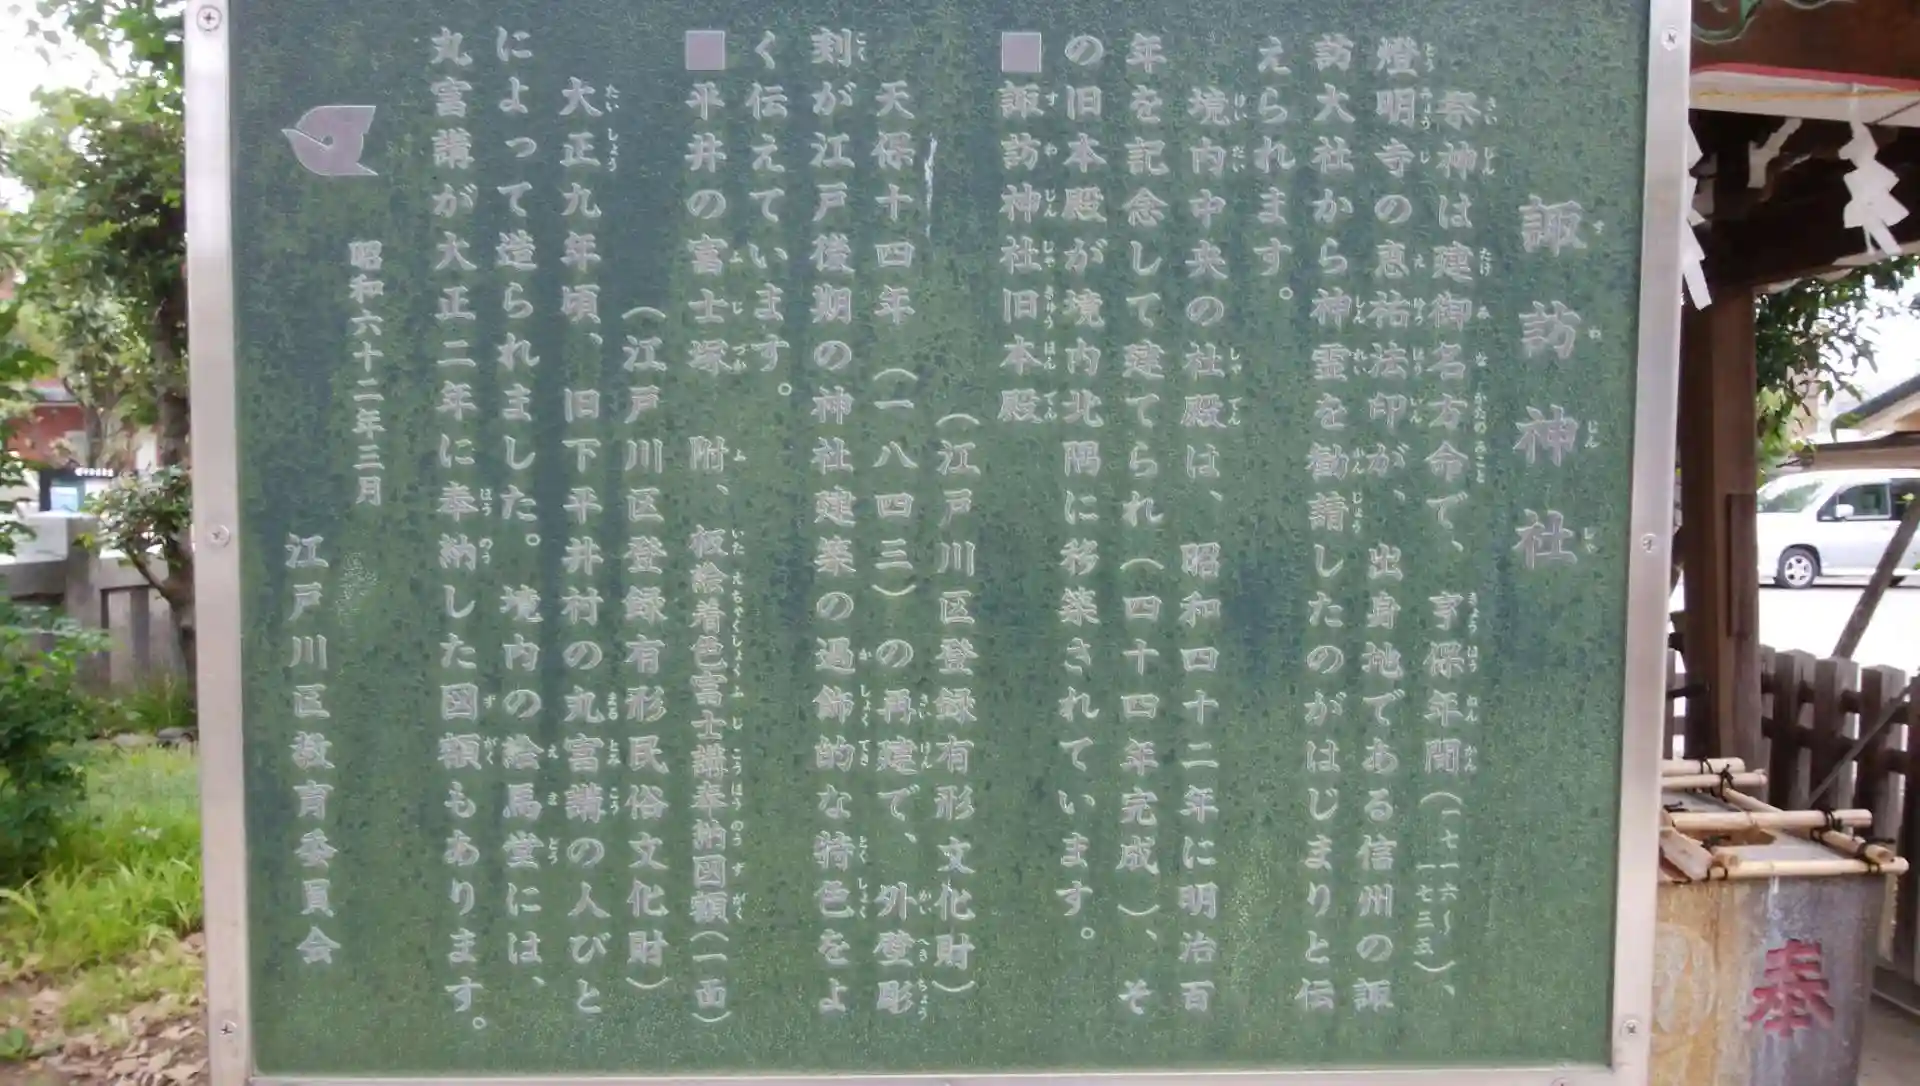 諏訪神社
祭神は建御名方命で、享保年間(一七一六〜一七三五)、
燈明寺の恵祐法印が、出身地である信州の諏
訪大社から神霊を勧請したのがはじまりと伝
えられます。
境内中央の社殿は、昭和四十二年に明治百
年を記念して建てられ(四十四年完成)、そ
の旧本殿が境内北隅に移築されています。
■諏訪神社旧本殿
(江戸川区登録有形文化財)
天保十四年(一八四三)の再建で、外壁彫
刻が江戸後期の神社建築の過飾的な特色をよ
く伝えています。
■平井の富士塚 附、板絵着色富士講奉納図額(一面)
(江戸川区登録有形民俗文化財)
大正九年頃、旧下平井村の丸富講の人びと
によって造られました。境内の絵馬堂には、
丸富講が大正二年に奉納した図額もあります。
昭和六十二年三月
江戸川区教育委員会
奉